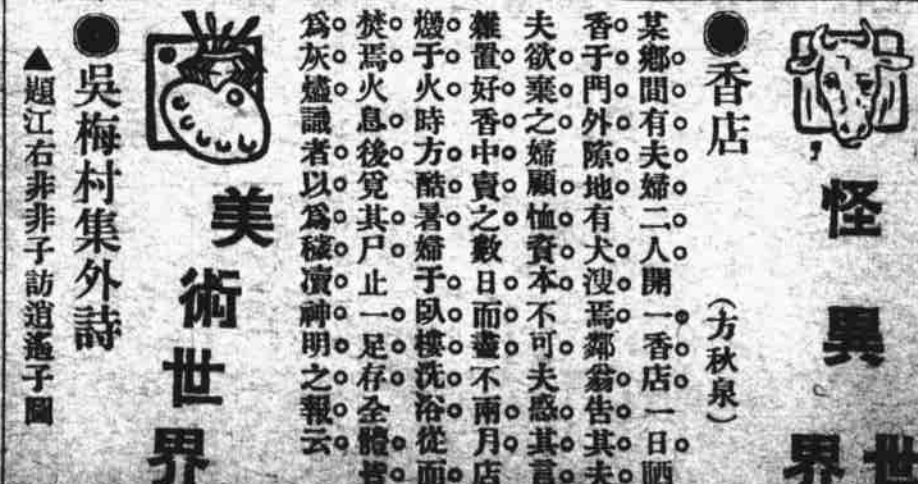 怪異世界
●香店
(方秋泉)
某鄉間有夫婦二人開一香店一日晒
香于門外隙地有犬溲焉鄰翁告其夫
夫欲棄之婦顧恤資本不可夫惑其言
雜置好香中賣之數日而盡不兩月店
燬于火時方酷暑婦于臥樓洗浴從而
焚焉火息後覓其尸止一足存全體皆
爲灰燼識者以爲穢凟神明之報云
美術世界
●吳梅村集外詩
▲題江右非非子訪逍遙子圖